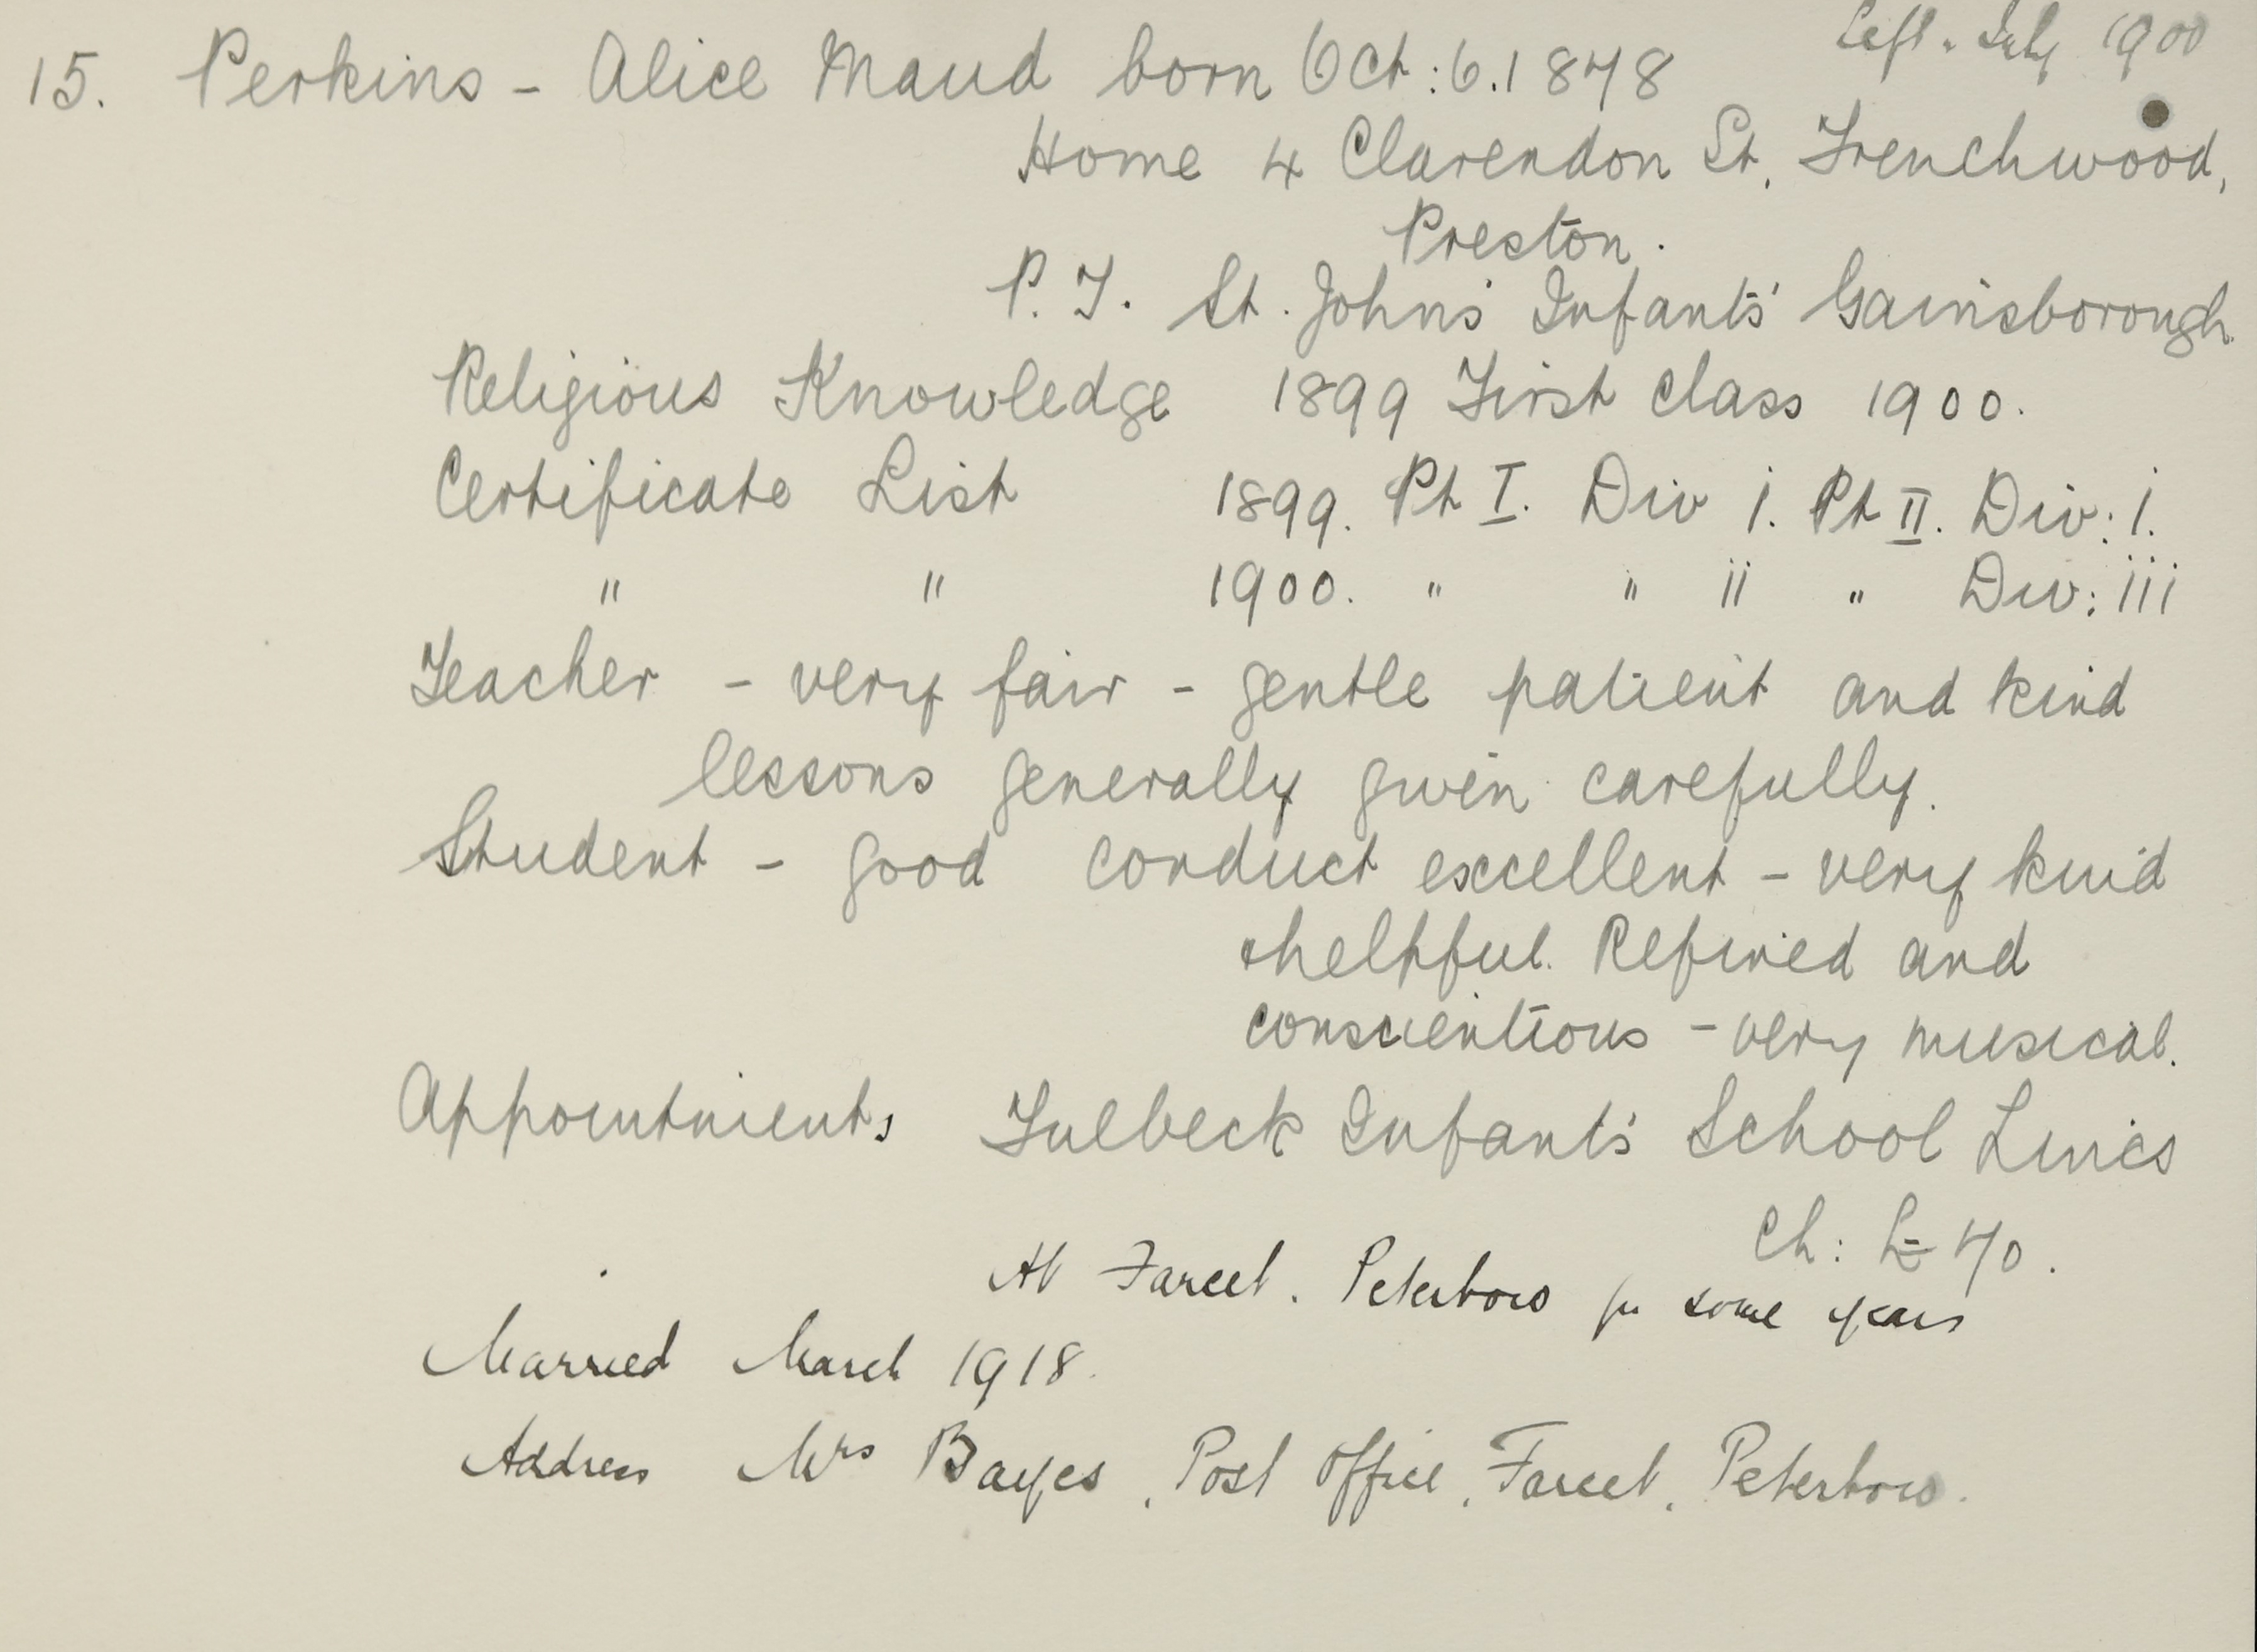 Left. July 1900
15. Perkins - Alice Maud born Oct: 6. 1878
Home 4 Clarendon St. Frenchwood,
Preston.
P. T. St. John's Infants' Gainsborough
Religious Knowledge 1899 First Class 1900.
Certificate List 1899. Pt I. Div i. Pt II. Div: i.
" " 1900. " " ii " Div: iii
Teacher - very fair - gentle patient and kind
lessons generally given carefully.
Student - good conduct excellent - very kind
& helpful. Refined and
conscientious - very musical.
Appointments Fulbeck Infants' School Lincs
Ch: £70.
At Farcet. Peterboro for some years
Married March 1918.
Address Mrs Bayes, Post Office, Farcet, Peterboro.